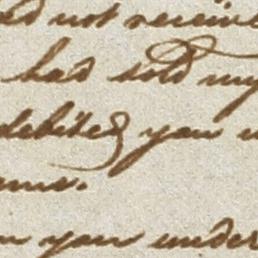 not receive
had sold my
debited you
you under